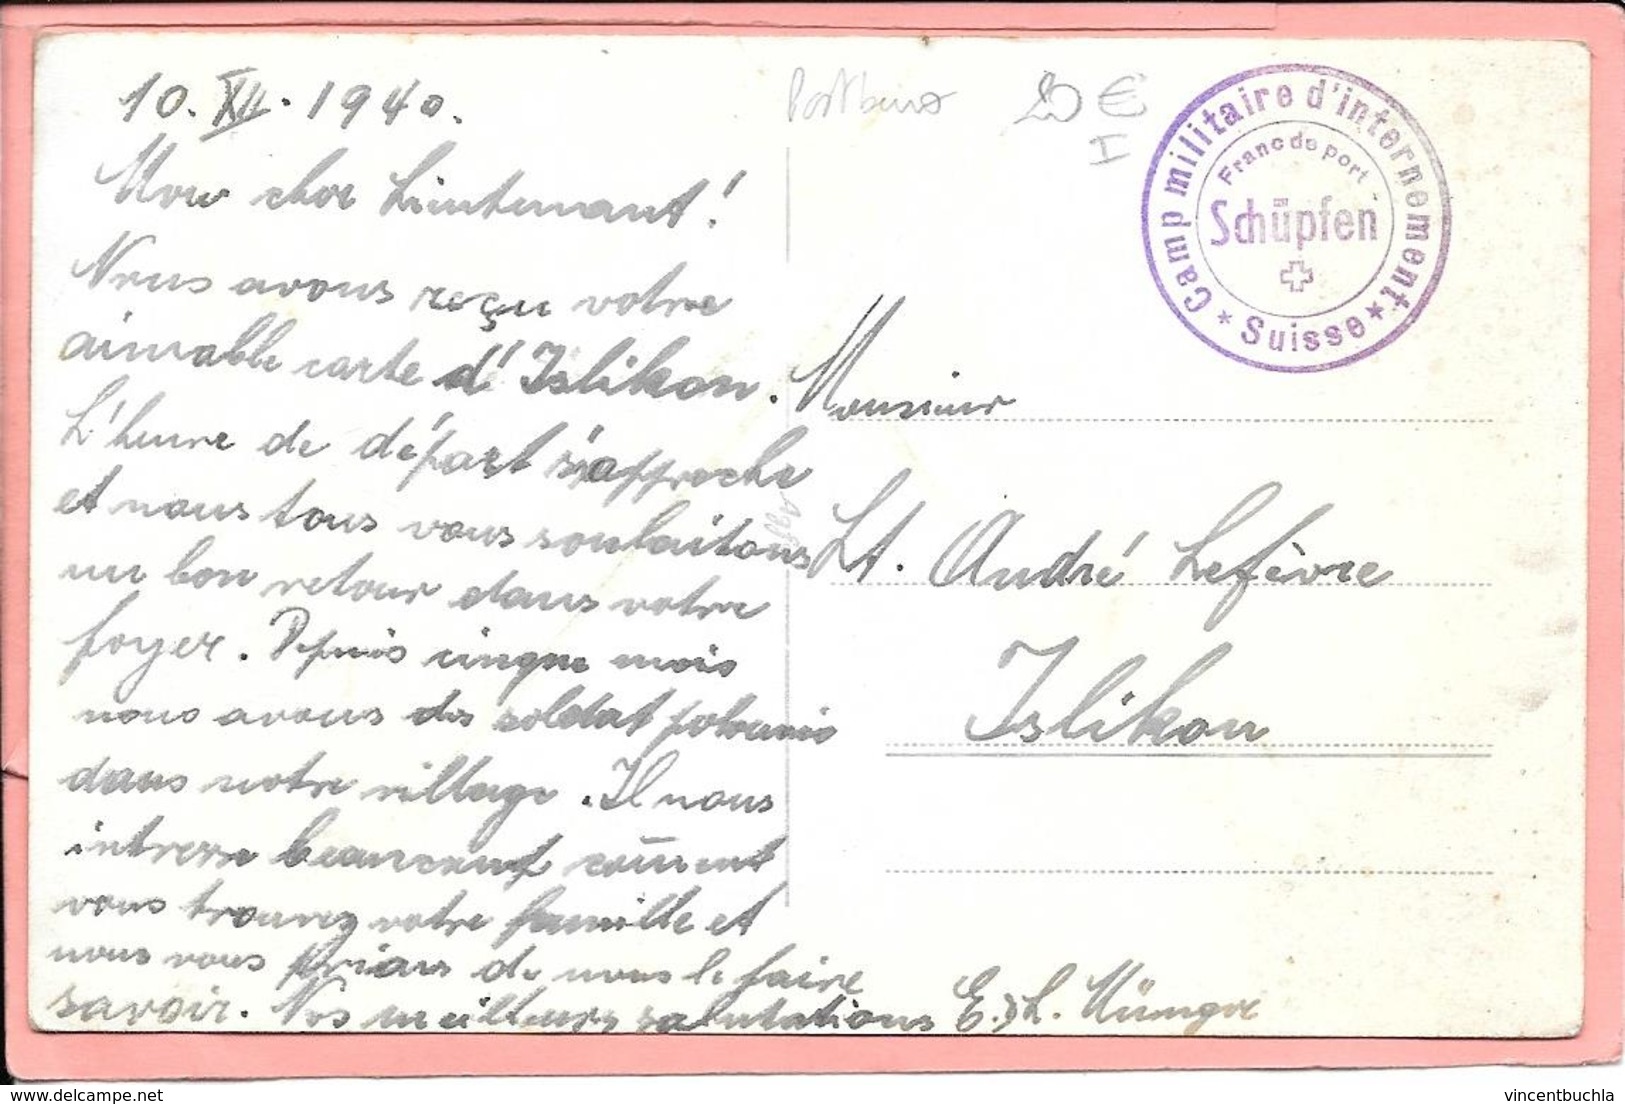 10. XII. 1940.
Mon cher Lieutenant!
Nous avons reçu votre
aimable carte d'Islikon.
L'heure de départ s'approche
et nous tous vous souhaitons
un bon retour dans votre
foyer. Depuis cinque mois
nous avons des soldat polonais
dans notre village. Il nous
intresse beaucoup comment
vous trouvez votre famille et
nous vous prions de nous le faire
savoir. Nos meilleurs salutations E. & L. Münger
20 €
I
Camp militaire d'internement
Franc de port
Schüpfen
* Suisse *
Monsieur
Lt. André Lefèvre
Islikon
delcampe.net
vincentbuchla